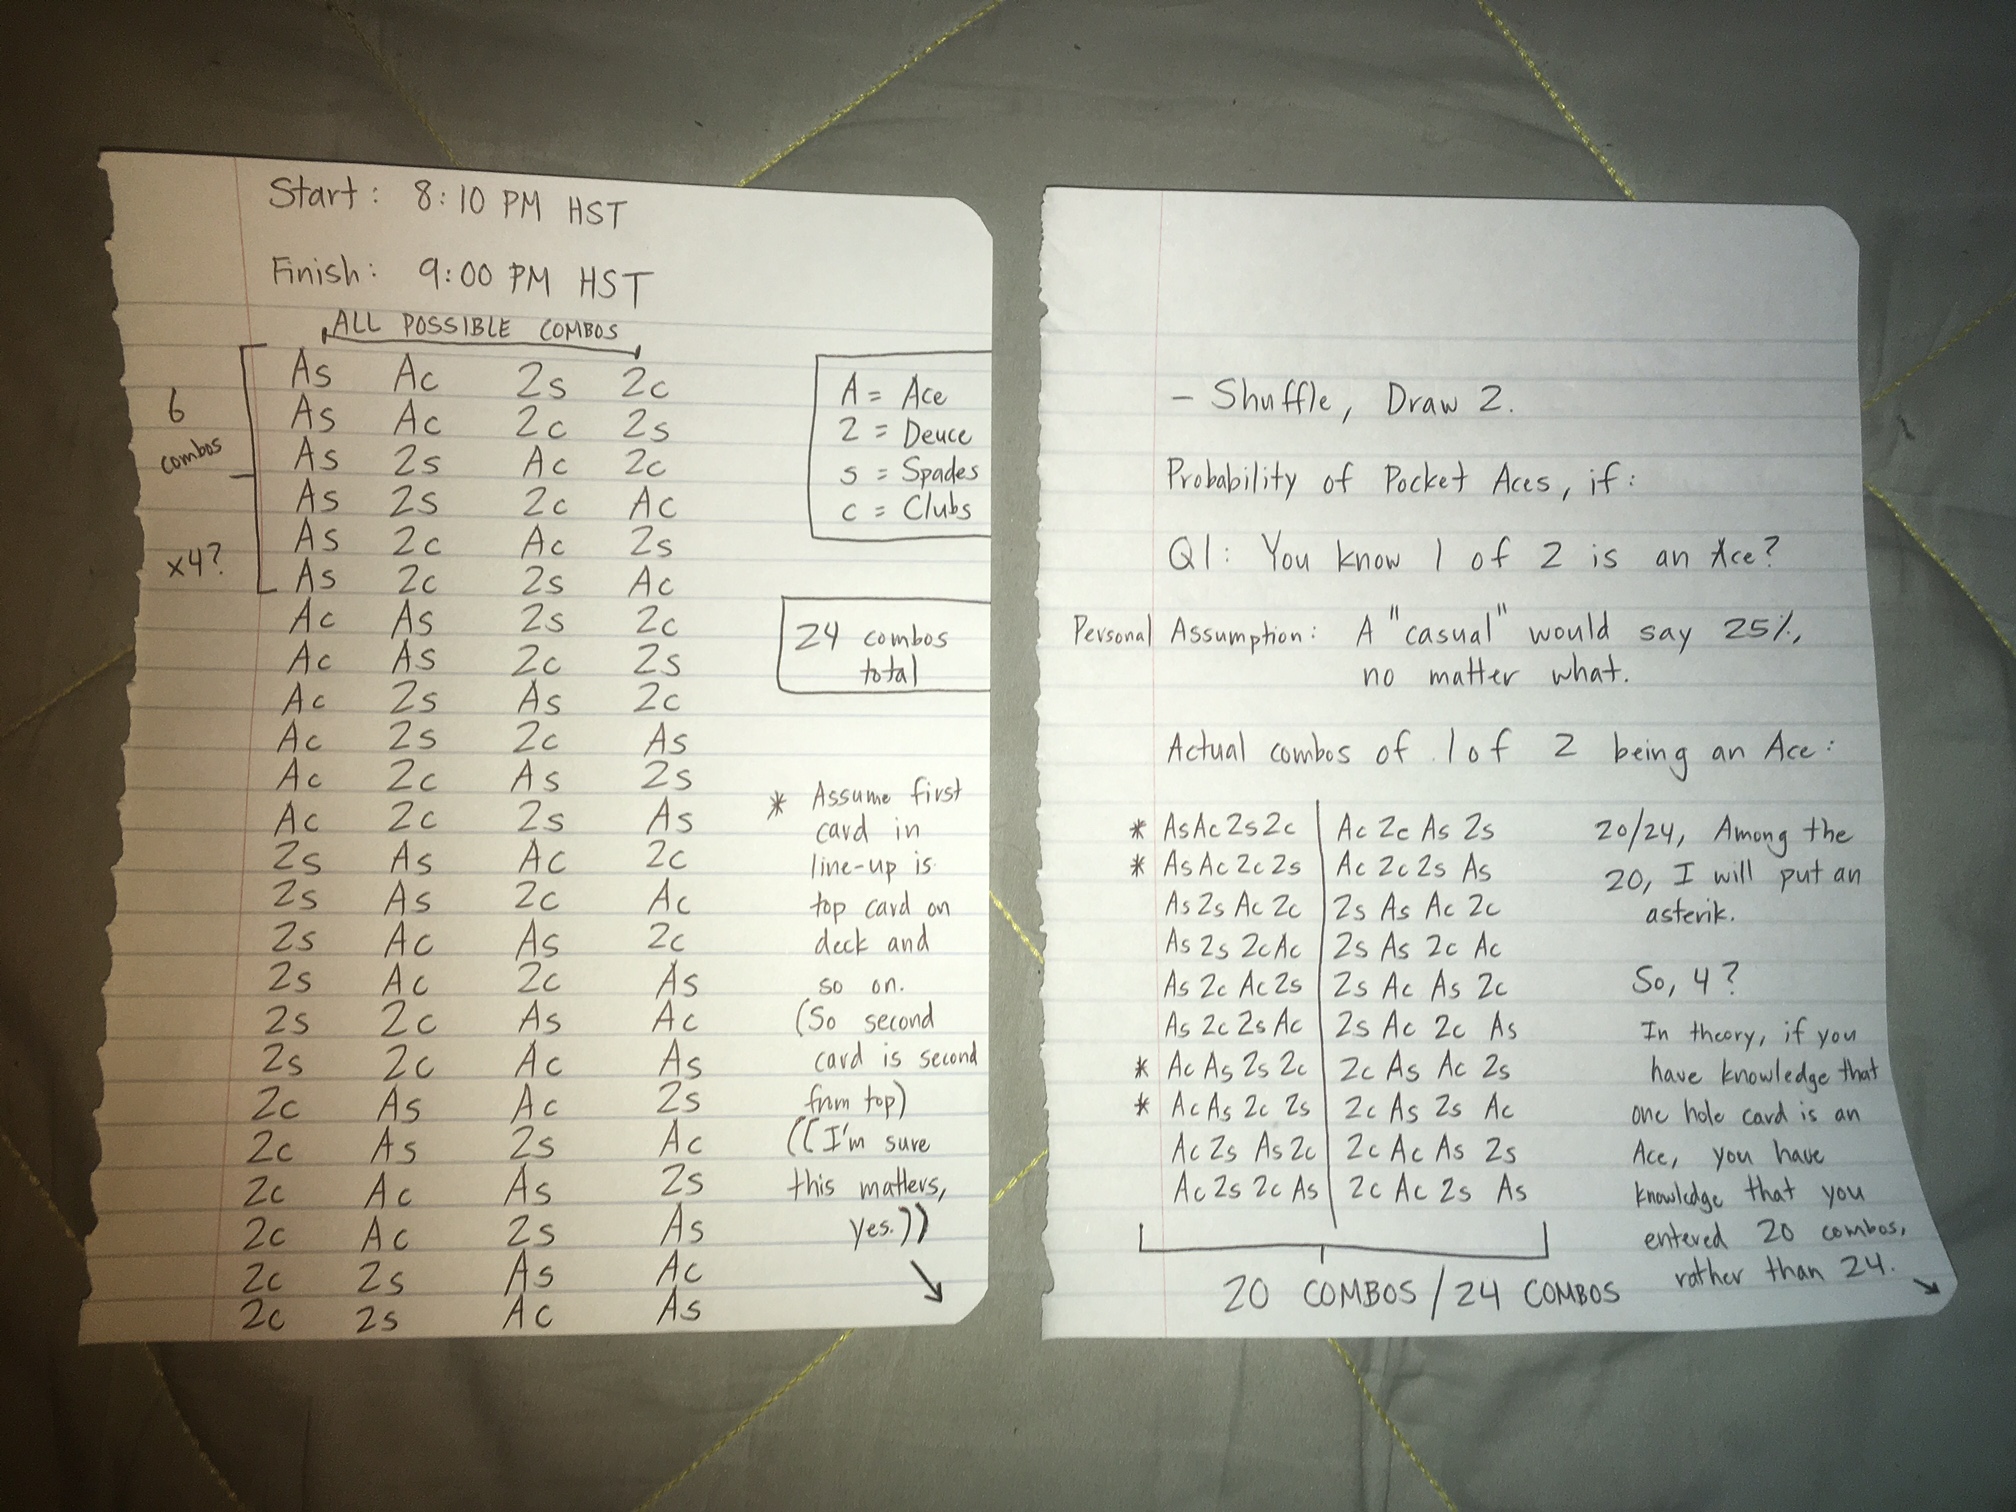 Start: 8:10 PM HST
Finish: 9:00 PM HST
ALL POSSIBLE COMBOS
6
combos
x4?
As Ac 2s 2c
As Ac 2c 2s
As 2s Ac 2c
As 2s 2c Ac
As 2c Ac 2s
As 2c 2s Ac
Ac As 2s 2c
Ac As 2c 2s
Ac 2s As 2c
Ac 2s 2c As
Ac 2c As 2s
Ac 2c 2s As
2s As Ac 2c
2s As 2c Ac
2s Ac As 2c
2s Ac 2c As
2s 2c As Ac
2s 2c Ac As
2c As Ac 2s
2c As 2s Ac
2c Ac As 2s
2c Ac 2s As
2c 2s As Ac
2c 2s Ac As
A = Ace
2 = Deuce
s = Spades
c = Clubs
24 combos
total
* Assume first
card in
line-up is
top card on
deck and
so on.
(So second
card is second
from top)
((I'm sure
this matters,
yes.))
- Shuffle, Draw 2.
Probability of Pocket Aces, if:
Q1: You know 1 of 2 is an Ace?
Personal Assumption: A "casual" would say 25%,
no matter what.
Actual combos of 1 of 2 being an Ace:
* As Ac 2s 2c | Ac 2c As 2s
* As Ac 2c 2s | Ac 2c 2s As
As 2s Ac 2c | 2s As Ac 2c
As 2s 2c Ac | 2s As 2c Ac
As 2c Ac 2s | 2s Ac As 2c
As 2c 2s Ac | 2s Ac 2c As
* Ac As 2s 2c | 2c As Ac 2s
* Ac As 2c 2s | 2c As 2s Ac
Ac 2s As 2c | 2c Ac As 2s
Ac 2s 2c As | 2c Ac 2s As
20 COMBOS / 24 COMBOS
20/24, Among the
20, I will put an
asterik.
So, 4?
In theory, if you
have knowledge that
one hole card is an
Ace, you have
knowledge that you
entered 20 combos,
rather than 24.